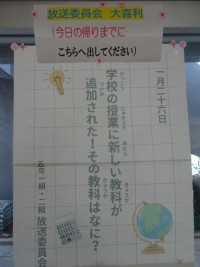 放送委員会 大喜利
(今日の帰りまでに
こちらへ出してください)
一月二十六日
学校の授業に新しい教科が
追加された!その教科はなに?
五年一組・二組 放送委員会